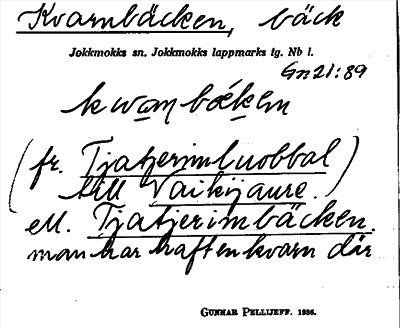 Kvarnbäcken, bäck
Jokkmokks sn. Jokkmokks lappmarks tg. Nb l.
Gn21:89
kwa̱mbék̄en
(fr. Tjatjerimluobbal)
till Vaikijaure.
ell. Tjatjerimbäcken.
man har haft en kvarn där
GUNNAR PELLIJEFF. 1936.